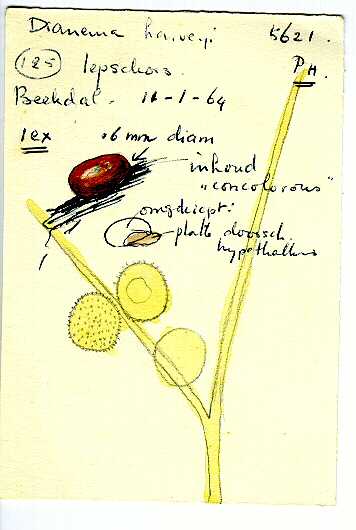 Dianema harveyi 5621.
125 lepschors. PH.
Beekdal - 11-1-64
1ex .6 mm diam
inhoud
"concolorous"
omgdiept:
platte doorsch.
hypothallus